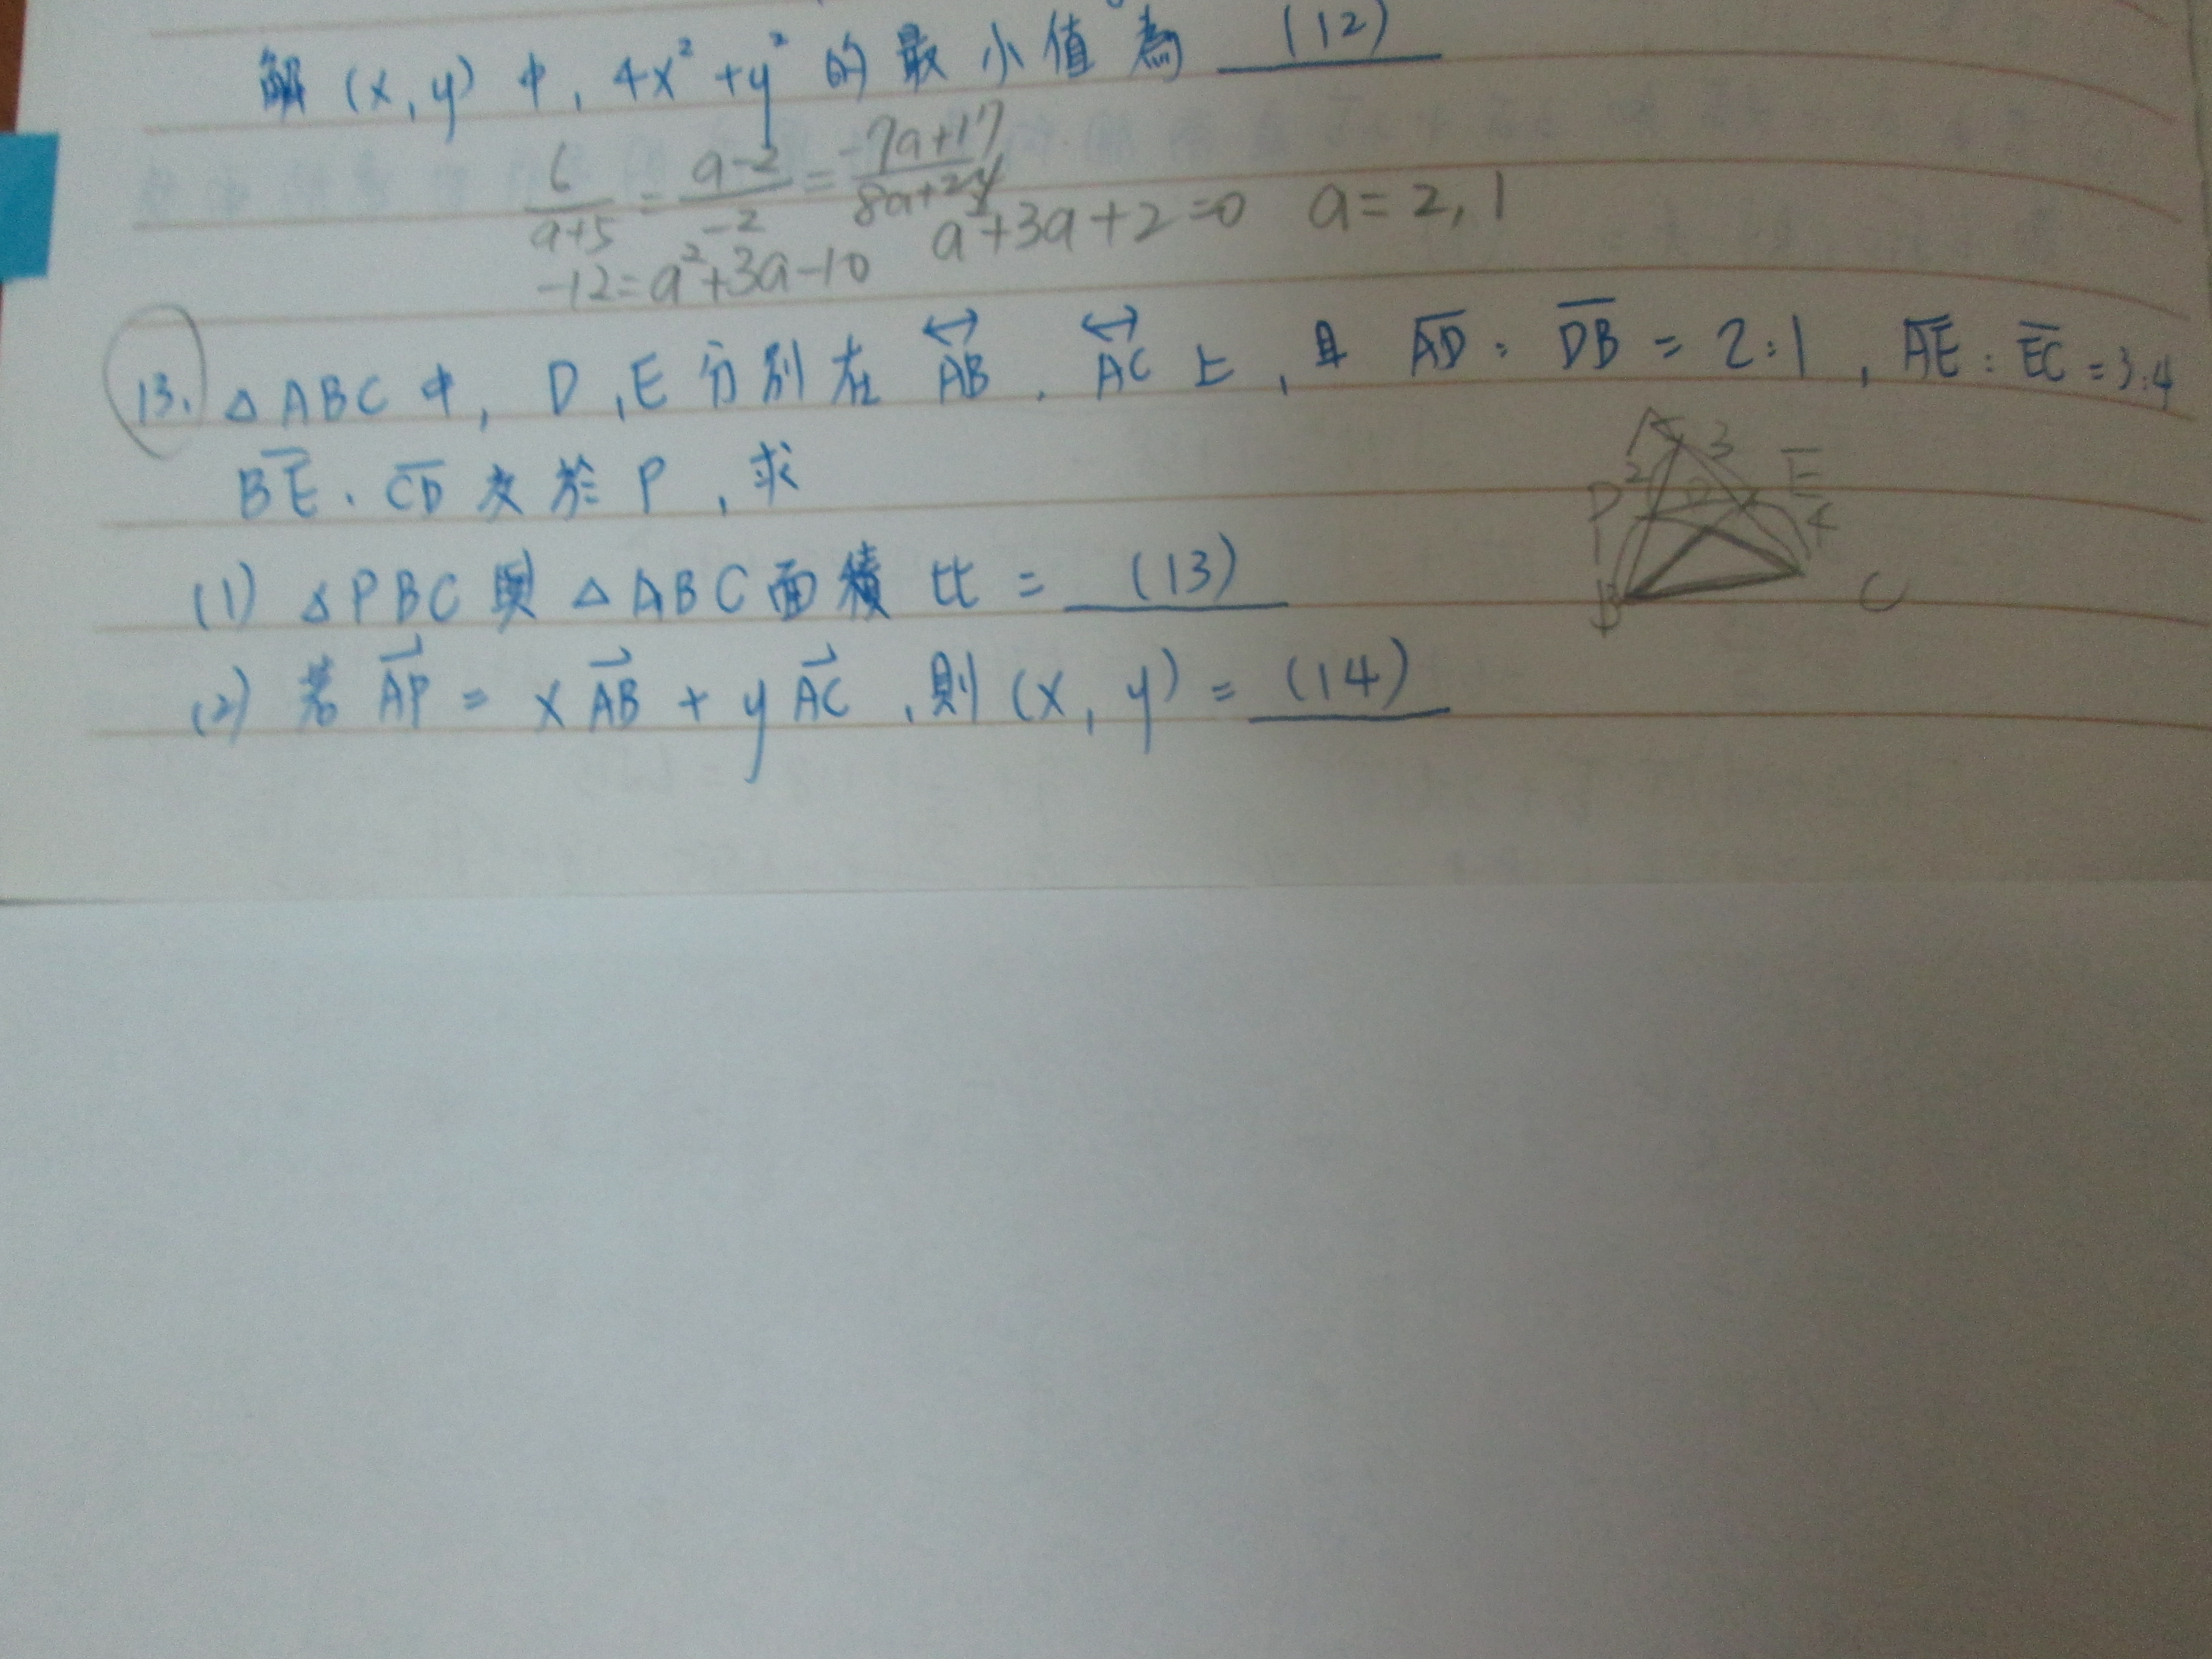 解 (x, y) 中, 4x² + y² 的最小值為 (12)
6/(a+5) = (a-2)/-2 = (-7a+17)/(8a+24)
-12 = a²+3a-10 a²+3a+2=0 a = 2, 1
13. △ABC 中, D, E 分別在 AB, AC 上, 且 AD : DB = 2:1, AE : EC = 3:4
BE, CD 交於 P, 求
(1) △PBC 與 △ABC 面積比 = (13)
(2) 若 AP = x AB + y AC, 則 (x, y) = (14)
A 3
2 E
D 4
1
B C